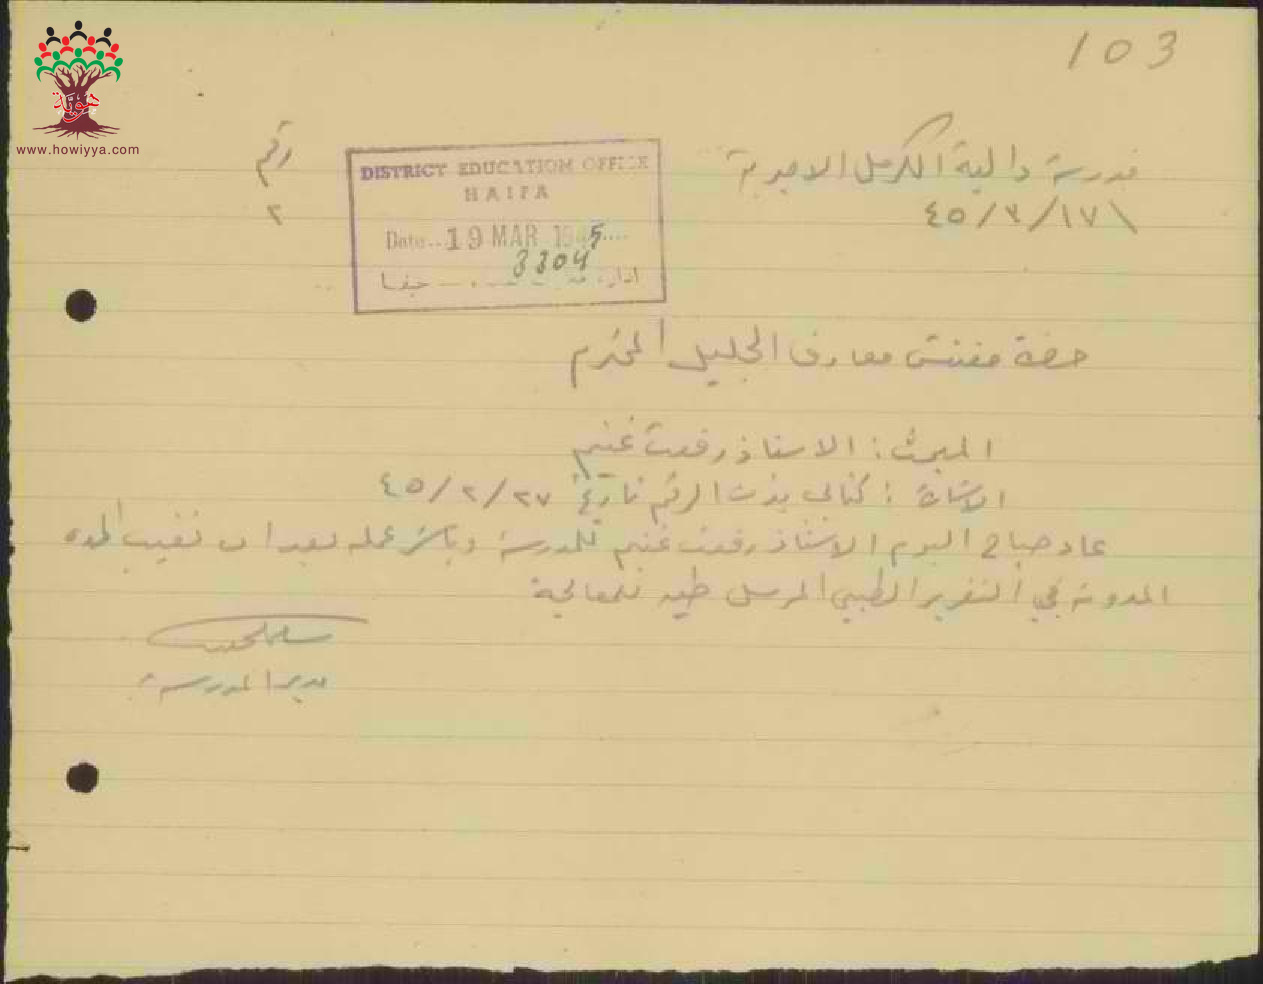 103
هوية
www.howiyya.com
رقم
٢
DISTRICT EDUCATION OFFICE
HAIFA
Date..19 MAR 1945....
3304
حيفا
مدرسة دالية الكرمل الاميرية
١٧/٣/٤٥
حضرة مفتش معارف الجليل المحترم
المبحث : الاستاذ رفعت غنيم
الاشارة : كتابي بذات الرقم تاريخ ٢٧/٢/٤٥
عاد صباح اليوم الاستاذ رفعت غنيم للمدرسة وباشر عمله بعد ان تغيب المده
المدونة في التقرير الطبي المرسل طيه للمعالجة
مدير المدرسة